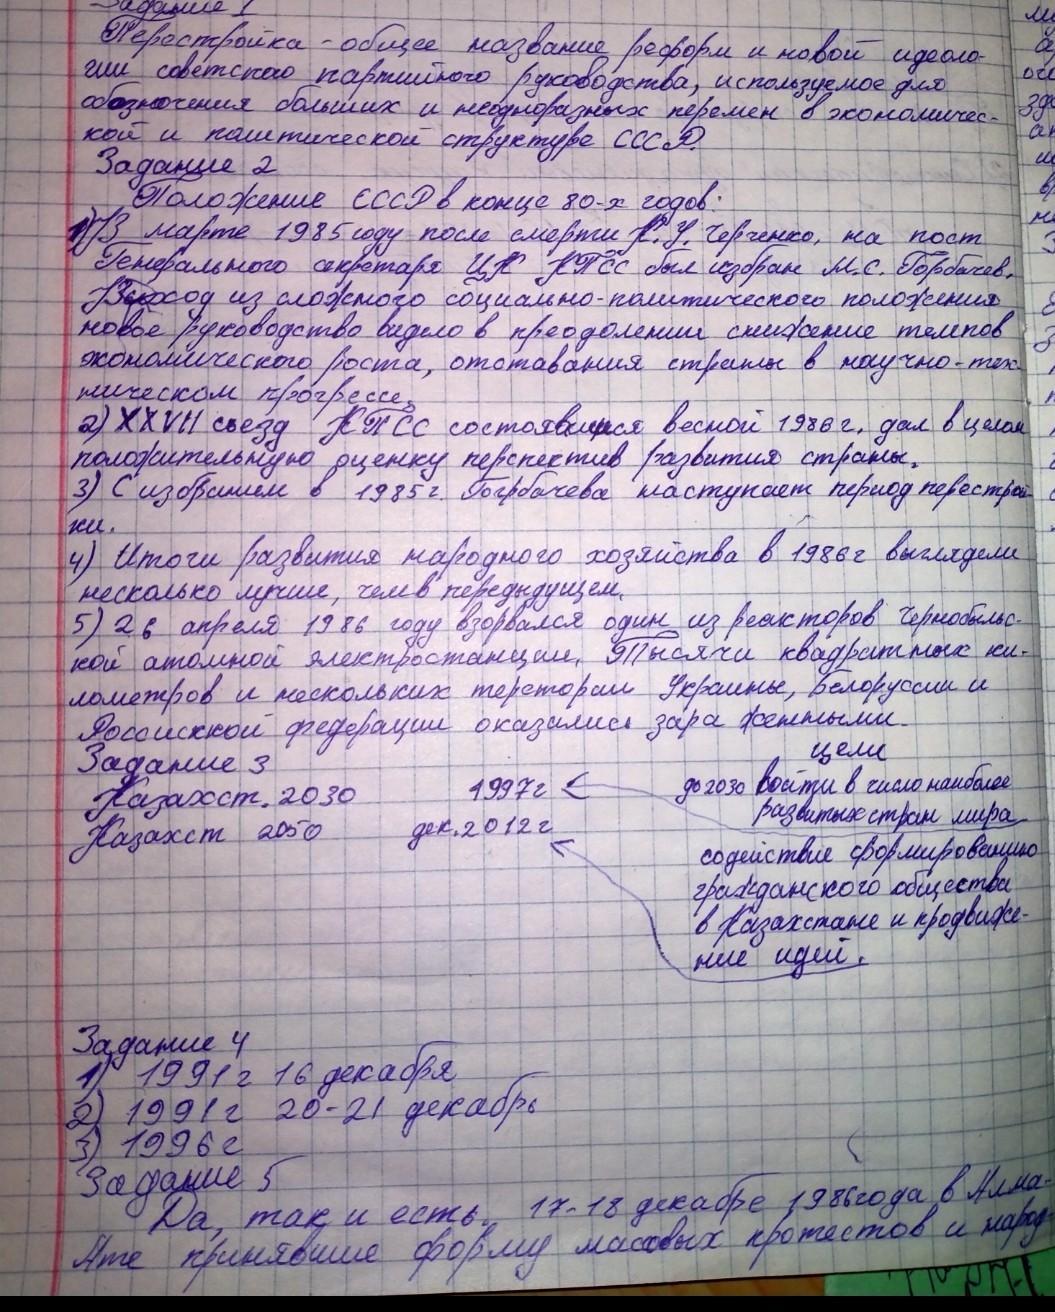 Задание 1
Перестройка - общее название реформ и новой идеоло-
гии советского партийного руководства, используемое для
обозночения больших и неоднор­азных перемен в экономичес-
кой и политической структуре СССР.
Задание 2
Положение СССР в конце 80-х годов:
1) В марте 1985 году после смерти К. У. Черченко, на пост
Генерального секретаря ЦК КПСС был избран М.С. Горбачев.
Выход из сложного социально-политического положения
новое руководство видело в преодолении снижение темпов
экономического роста, отставания страны в научно-тех-
ническом прогрессе.
2) XXVII съезд КПСС состоявшися весной 1986 г. дал в целом
положительную оценку перспектив развития страны.
3) С избранием в 1985 г. Горбачева наступает период перестрой-
ки.
4) Итоги развития народного хозяйства в 1986 г выглядели
несколько лучше, чем в передыдущем.
5) 26 апреля 1986 году взорвался один из реакторов Чернобыльс-
кой атомной электростанции. Тысячи квадратных ки-
лометров и нескольких територии Украины, Белоруссии и
Россиской федерации оказались зара женными.
Задание 3
цели
Казахст. 2030 1997 г
до 2030 войти в число наиболее
развитых стран мира
Казахст 2050 дек. 2012 г
содействие формированию
гражданского общества
в Казахстане и продвиже-
ние идей.
Задание 4
1) 1991 г 16 декабря
2) 1991 г 20-21 декабрь
3) 1996 г
Задание 5
Да, так и есть. 17-18 декабре 1986 года в Алма-
Ате принявшие форму массовых протестов и народ